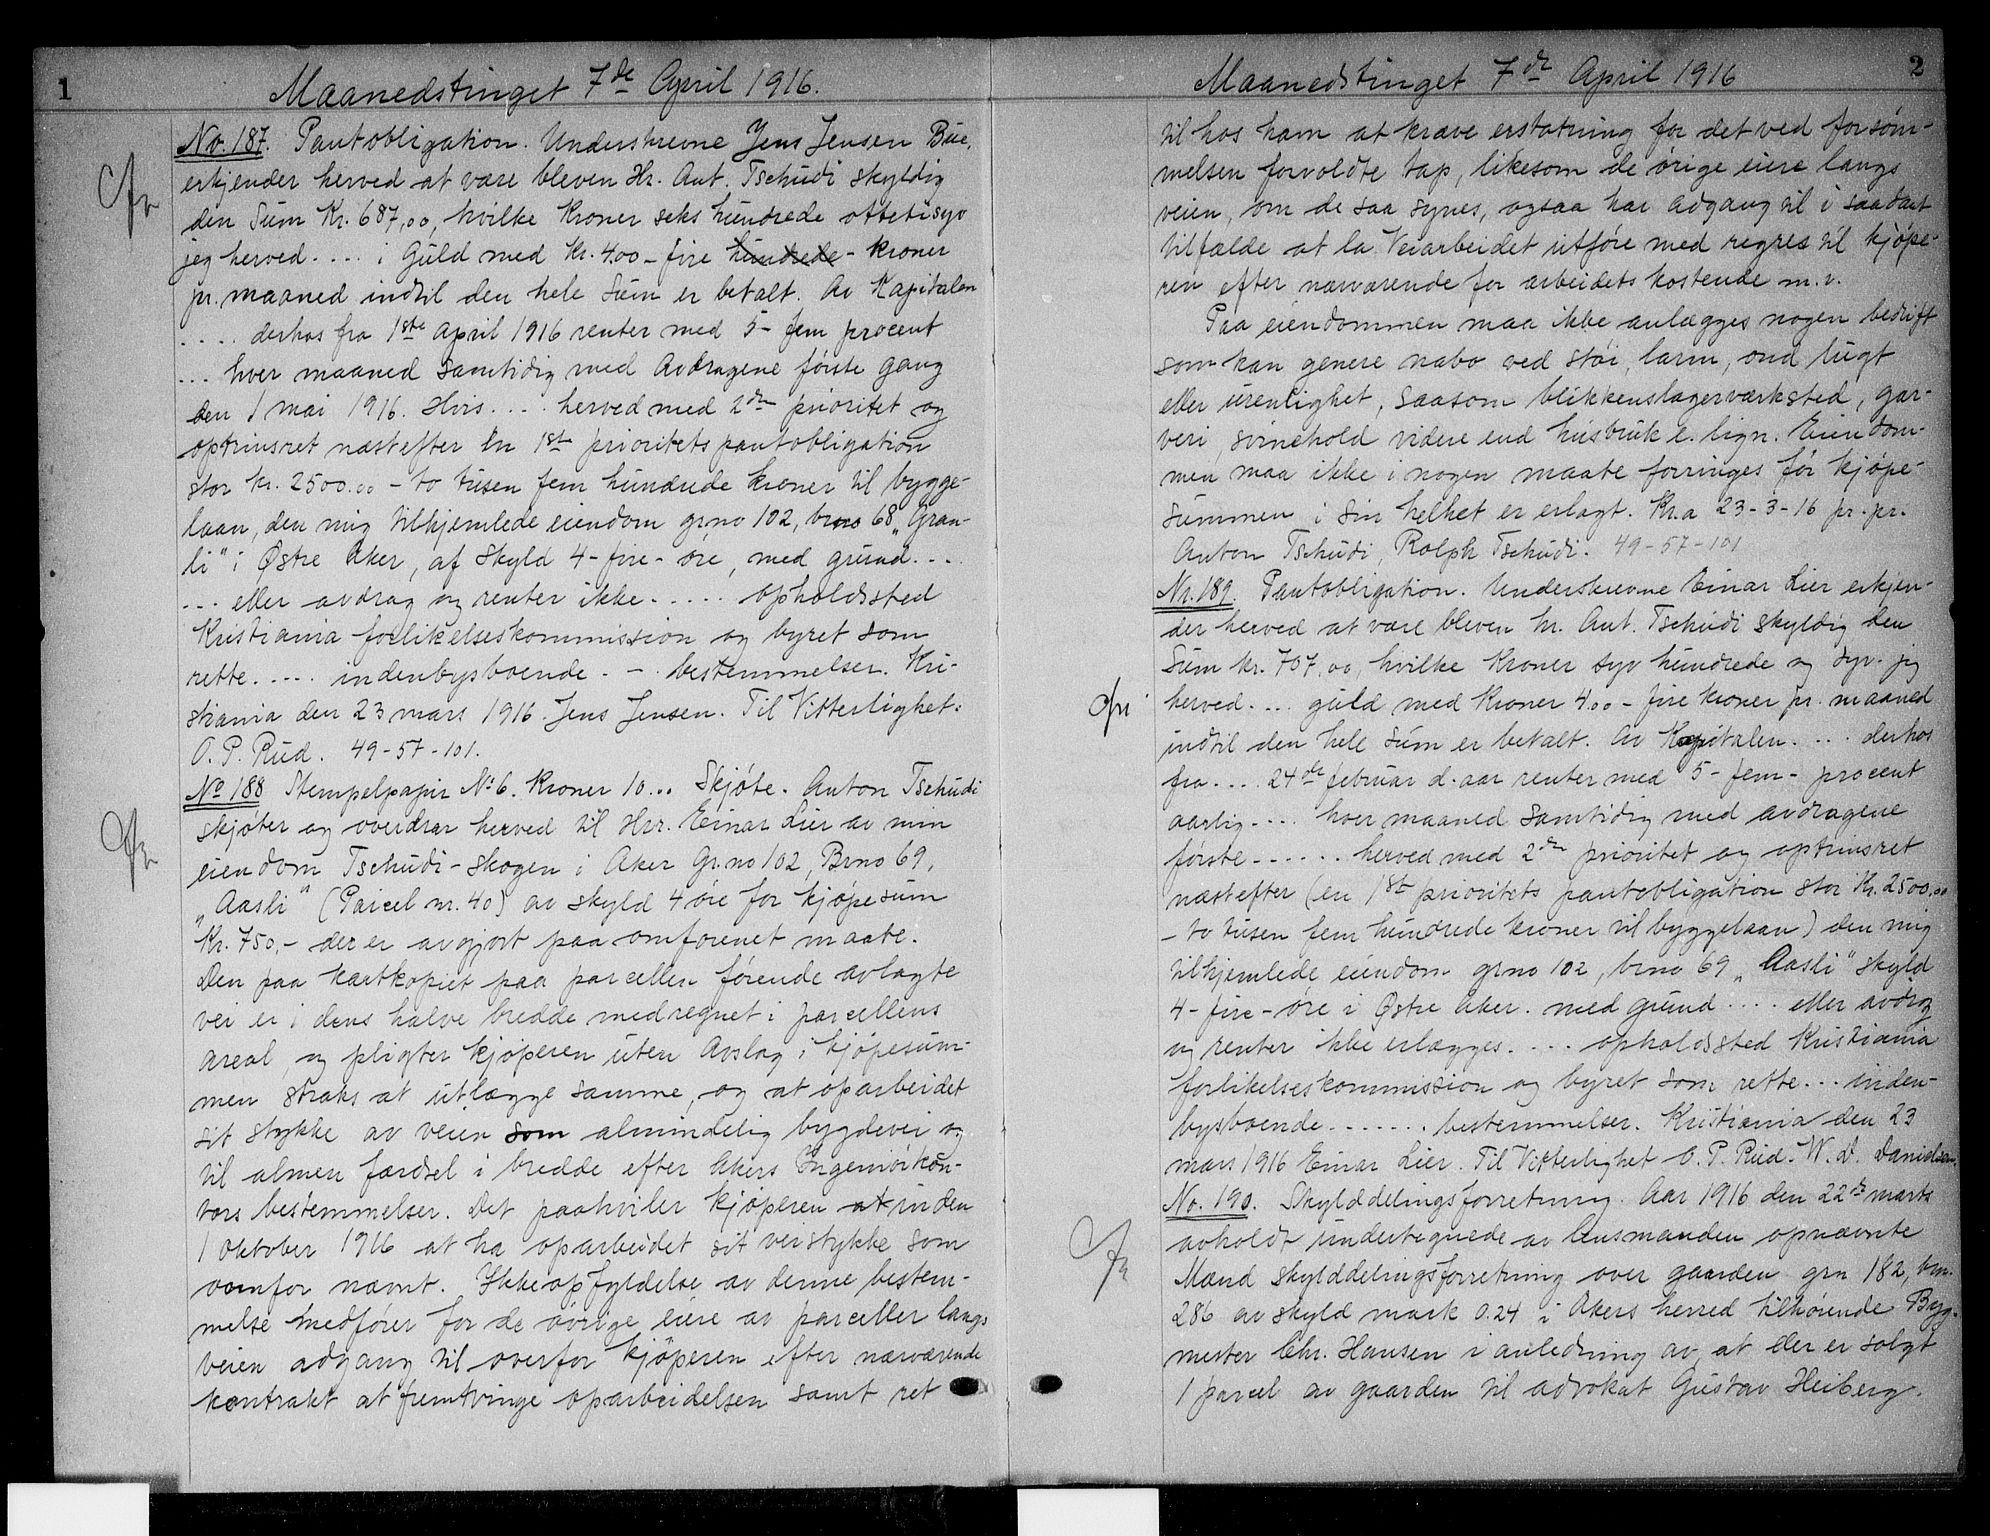 1
Maanedstinget 7de April 1916.
No. 187. Pantobligation. Underskrevne Jens Jensen Bue,
erkjender herved at være bleven Hr. Ant. Tschudi skyldig
den Sum Kr. 687,00, hvilke Kroner seks hundrede ottetisyv
jeg herved .... i Guld med Kr. 4.00 - fire hundrede - kroner
pr. maaned indtil den hele Sum er betalt. Av Kapitalen
.... derhos fra 1ste april 1916 renter med 5 - fem procent
... hver maaned samtidig med Avdragene første gang
den 1 mai 1916. Hvis .... herved med 2den prioritet og
optrinsret næstefter en 1st prioritets pantobligation
stor kr. 2500.00 - to tusen fem hundrede kroner til bygge-
laan, den mig tilhjemlede eiendom grno 102, brno 68 "Gran-
li" i Østre Aker, af skyld 4 - fire - øre, med grund ....
... eller avdrag og renter ikke ..... opholdssted
Kristiania forlikelseskommission og byret som
rette ..... indenbysboende - - bestemmelser. Kri-
stiania den 23 mars 1916. Jens Jensen. Til Vitterlighet:
O. P. Rud. 49-57-101.
No 188 Stempelpapir No 6. Kroner 10... Skjøte. Anton Tschudi
skjøter og overdrar herved til Hrr. Einar Lier av min
eiendom Tschudi-skogen i Aker Gr.no 102, Brno 69,
"Aasli" (Parcel nr. 40) av skyld 4 øre for kjøpesum
Kr. 750,- der er avgjort paa omforenet maate.
Den paa kartkopiet paa parcellen førende avlagte
vei er i dens halve bredde medregnet i parcellens
areal, og pligter kjøperen uten Avslag i kjøpesum-
men straks at utlægge samme, og at oparbeidet
sit stykke av veien som almindelig bygdevei og
til almen færdsel i bredde efter Akers Ingeniørkon-
tors bestemmelser. Det paahviler kjøperen at inden
1 Oktober 1916 at ha oparbeidet sit veistykke som
ovenfor nævnt. Ikkeopfyldelse av denne bestem-
melse medfører for de øvrige eiere av parceller langs
veien adgang til overfor kjøperen efter nærværende
kontrakt at fremtvinge oparbeidelsen samt ret
2
Maanedstinget 7de April 1916
til hos ham at kræve erstatning for det ved forsøm-
melsen forvoldte tap, likesom de ørige eiere langs
veien, om de saa synes, ogsaa har adgang til i saadant
tilfælde at la Veiarbeidet utføre med regres til kjøpe-
ren efter nærværende for arbeidets kostende m.v.
Paa eiendommen maa ikke anlægges nogen bedrift
som kan genere nabo ved støi, larm, ond lugt
eller urenlighet, saasom blikkenslagerværksted, gar-
veri, svinehold videre end husbruk e. lign. Eiendom-
men maa ikke i nogen maate forringes før kjøpe-
summen i sin helhet er erlagt. Kr.a 23-3-16 pr. pr.
Anton Tschudi, Rolph Tschudi. 49-57-101
Nr. 189. Pantobligation. Underskrevne Einar Lier erkjen-
der herved at være bleven hr. Ant. Tschudi skyldig den
Sum kr. 707,00, hvilke Kroner syv hundrede og syv- jeg
herved .... guld med Kroner 4.00 - fire kroner pr. maaned
indtil den hele sum er betalt. Av Kapitalen .... derhos
fra .... 24de februar d. aar renter med 5 - fem - procent
aarlig .... hver maaned samtidig med avdragene
første ...... herved med 2den prioritet og optrinsret
næstefter (en 1st prioritets pantobligation stor Kr. 2500,00
- to tusen fem hundrede kroner til byggelaan) den mig
tilhjemlede eiendom grno 102, brno 69 "Aasli" skyld
4 - fire - øre i Østre Aker. med grund .... eller avdrag
og renter ikke erlægges .... opholdssted Kristiania
forlikelseskommission og byret som rette ... inden-
bysboende ....... bestemmelser. Kristiania den 23
mars 1916 Einar Lier. Til Vitterlighet O. P. Rud. W. D. Danielsen.
No. 190. Skylddelingsforretning. Aar 1916 den 22de marts
avholdt undertegnede av lensmanden opnævnte
Mænd skylddelingsforretning over gaarden grn 182, brn.
286 av skyld mark 0.24 i Akers herred tilhørende Byg.
mester Chr. Hansen i anledning av, at der er solgt
1 parcel av gaarden til advokat Gustav Heiberg.